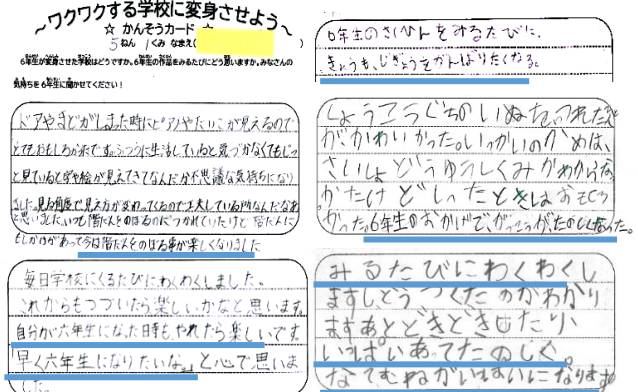 ～ワクワクする学校に変身させよう～
☆ かんそうカード ☆
5ねん 1くみ なまえ(
6年生が変身させた学校はどうですか。6年生の作品をみるたびにどう思いますか。みなさんの
気持ちを6年生に聞かせてください！
ドアやまどがしまった時にピアノやたいこが見えるので
とてもおもしろかったです。ふつうに生活していると気づかなくてもじっ
と見ていると字や絵が見えてきてなんだか不思議な気持ちになり
ました。見る角度で見え方が変わってくるので工夫している所なんだなあ
と思いました。いつも階だんをのぼるのにつかれていたけど階だんに
もしかけがあって今は階だんをのぼる事が楽しくなりました
毎日学校にくるたびにわくわくしました。
これからもつづいたら楽しいかなと思います。
自分が六年生になった日時も、やれたら楽しいです。
「早く六年生になりたいな。」と心で思いま
した。
6年生のさくひんをみるたびに、
きょうも、じぎょうをがんばりたくなる。
しょうこうぐちのいぬ
がかわいかった。いっかいのかめは、
さいしょどうゆうしくみかわからな
かたけどしったときはおもしろ
かった。6年生のおかげで、がっこうが、たのしくなった。
みるたびにわくわくし
ますしどうつくたのかわかり
ますあとどきどきしたり
いっぱいあってたのしく。
なてむねがいっぱいになります